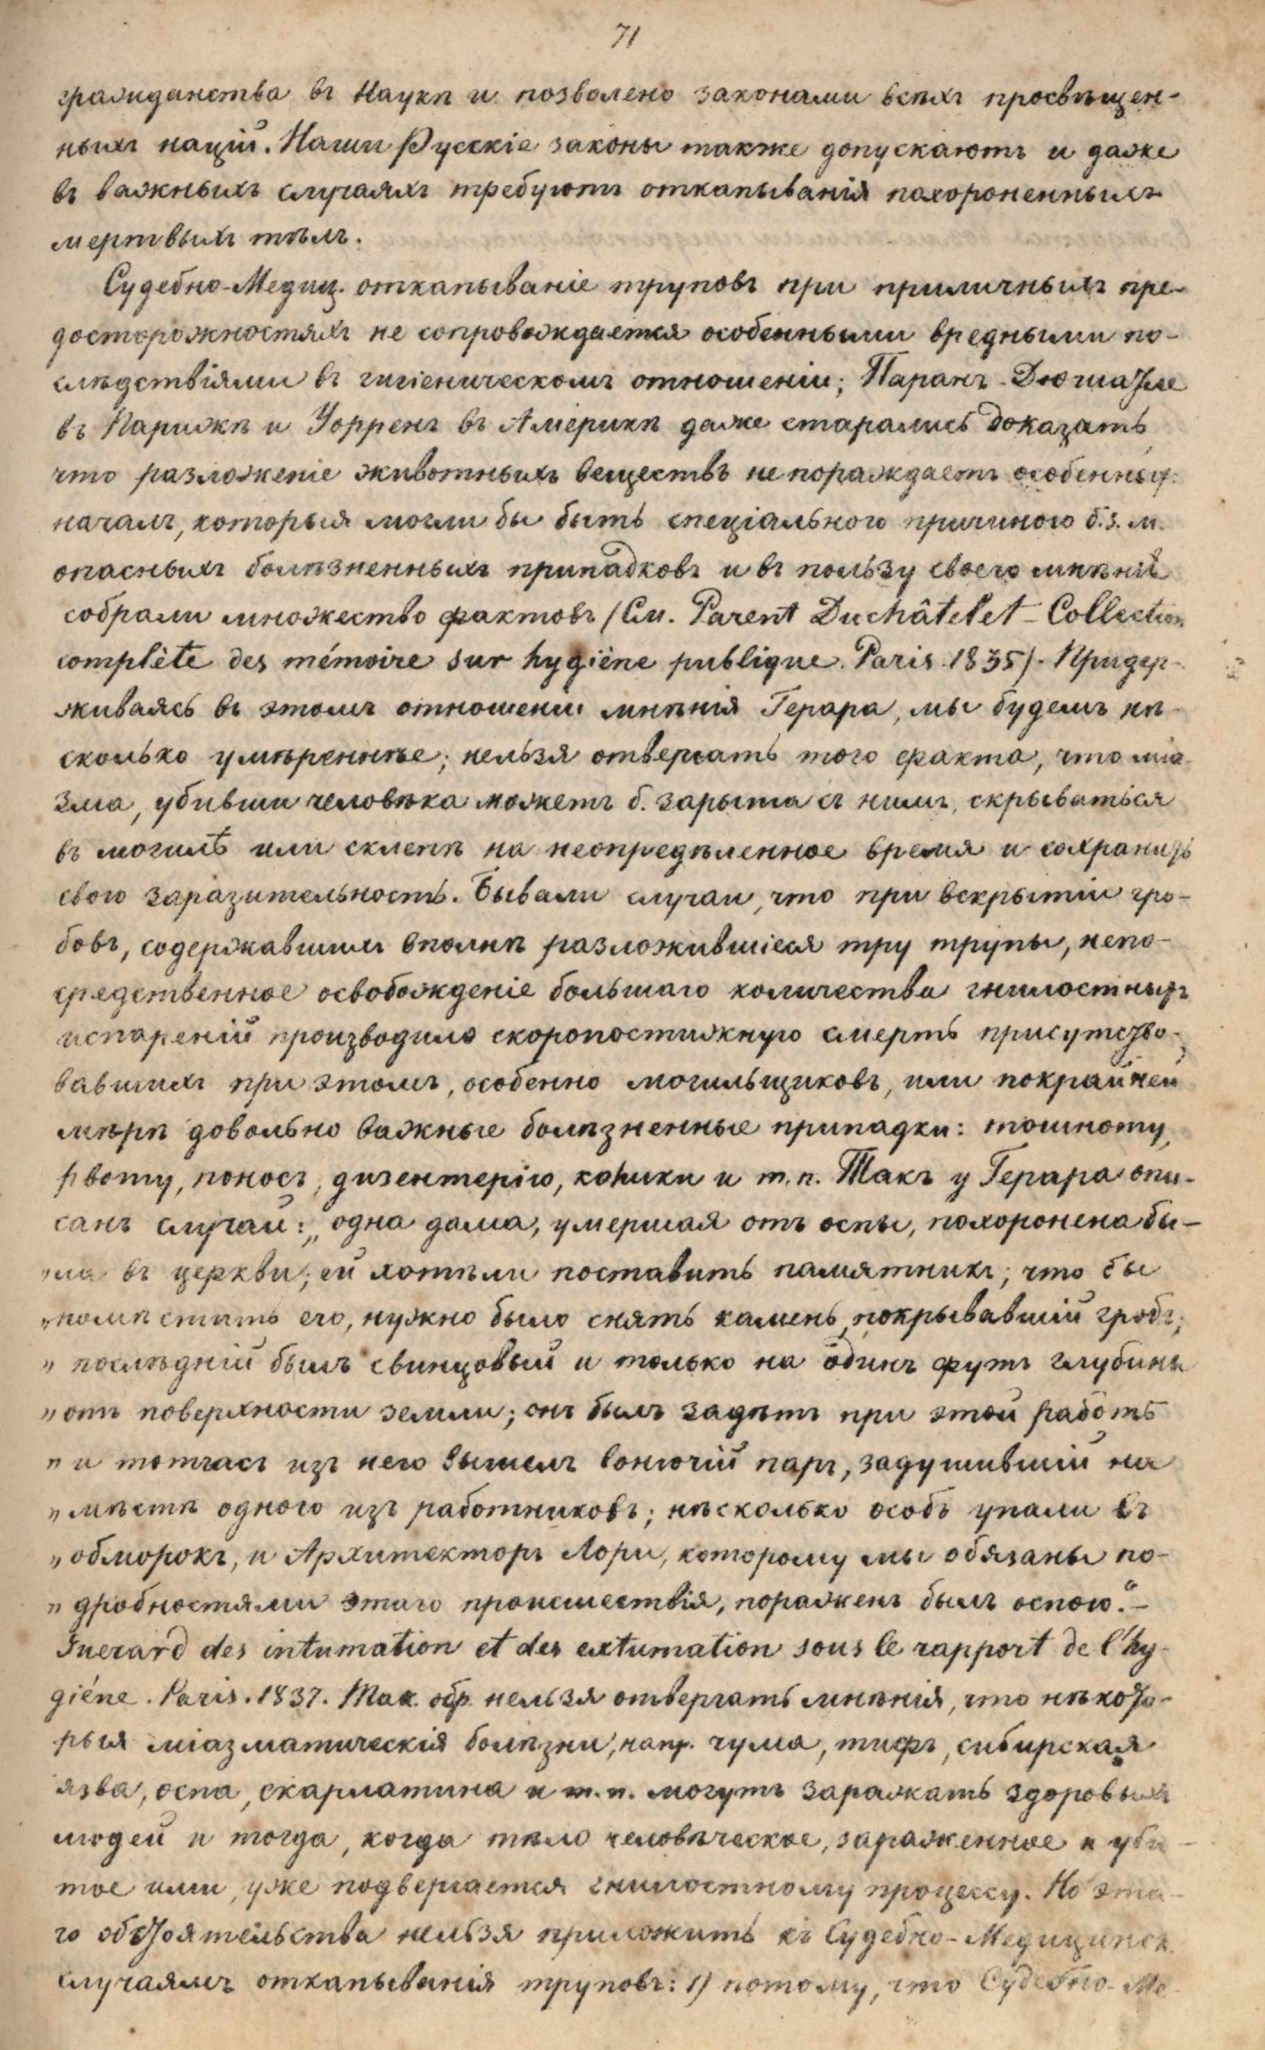 71
гражданства въ Наукѣ и позволено законами всѣхъ просвѣщен-
ныхъ націй. Наши Русскіе законы также допускаютъ и даже
въ важныхъ случаяхъ требуютъ откапыванія похороненныхъ
мертвыхъ тѣлъ.
Судебно-Медиц. откапываніе труповъ при приличныхъ пре-
досторожностяхъ не сопровождается особенными вредными по-
слѣдствіями въ гигіеническомъ отношеніи; Паранъ-Дюшатле
въ Парижѣ и Уорренъ въ Америкѣ даже старались доказать,
что разложеніе животныхъ веществъ не пораждаетъ особенныхъ
началъ, которыя могли бы быть спеціального причиною б.з.м.
опасныхъ болѣзненныхъ припадковъ и въ пользу своего мнѣнія
собрали множество фактовъ (См. Parent Duchâtelet - Collection
complète des mémoire sur hygiène publique. Paris. 1835). Придер-
живаясь въ этомъ отношеніи мнѣнія Герара, мы будемъ нѣ-
сколько умѣреннѣе; нельзя отвергать того факта, что міа-
зма, убивши человѣка можетъ б. зарыта съ нимъ, скрываться
въ могилѣ или склепѣ на неопредѣленное время и сохранить
свою заразительность. Бывали случаи, что при вскрытіи гро-
бовъ, содержавшихъ вполнѣ разложившіеся тру трупы, непо-
средственное освобожденіе большаго количества гнилостныхъ
испареній производило скоропостижную смерть присутство-
вавшихъ при этомъ, особенно могильщиковъ, или покрайней
мѣрѣ довольно важные болѣзненные припадки: тошноту,
рвоту, поносъ, дизентерію, колики и т.п. Такъ у Герара опи-
санъ случай: „одна дама, умершая отъ оспы, похоронена бы-
„ла въ церкви; ей хотѣли поставить памятникъ; что бы
„помѣстить его, нужно было снять камень, покрывавшій гробъ;
„послѣдній былъ свинцовый и только на одинъ футъ глубины
„отъ поверхности земли; онъ былъ задѣтъ при этой работѣ
„и тотчасъ изъ него вышелъ вонючій паръ, задушившій на
„мѣстѣ одного изъ работниковъ; нѣсколько особъ упали въ
„обморокъ, и Архитекторъ Лори, которому мы обязаны по-
„дробностями этаго происшествія, пораженъ былъ оспою.“ –
Guerard des intumation et des extumation sous le rapport de l'hy-
giéne. Paris. 1837. Так. обр. нельзя отвергать мнѣнія, что нѣкото-
рыя міазматическія болѣзни, напр. чума, тифъ, сибирская
язва, оспа, скарлатина и т.п. могутъ заражать здоровыхъ
людей и тогда, когда тѣло человѣческое, зараженное и уби-
тое ими, уже подвергается гнилостному процессу. Но эта-
го обстоятельства нельзя приложить къ Судебно-Медицинск.
случаямъ откапыванія труповъ: 1) потому, что Судебно-Ме-